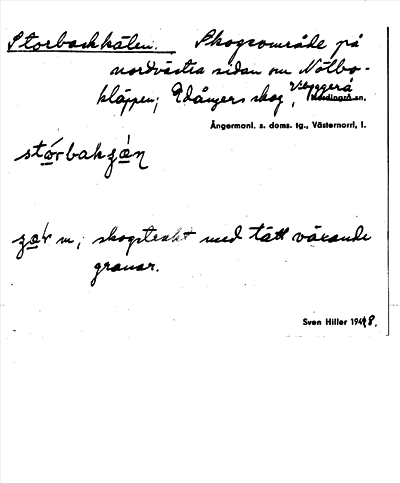 Storbackkälen. Skogsområde på
nordvästra sidan om Nölbo-
kläppen; Edångers skog, Vibyggerå
Nordingrå sn,
Ångermanl. s. doms. tg., Västernorrl, l.
stórbakʒán
m; skogstrakt med tätt växande
granar.
Sven Hiller 1948.